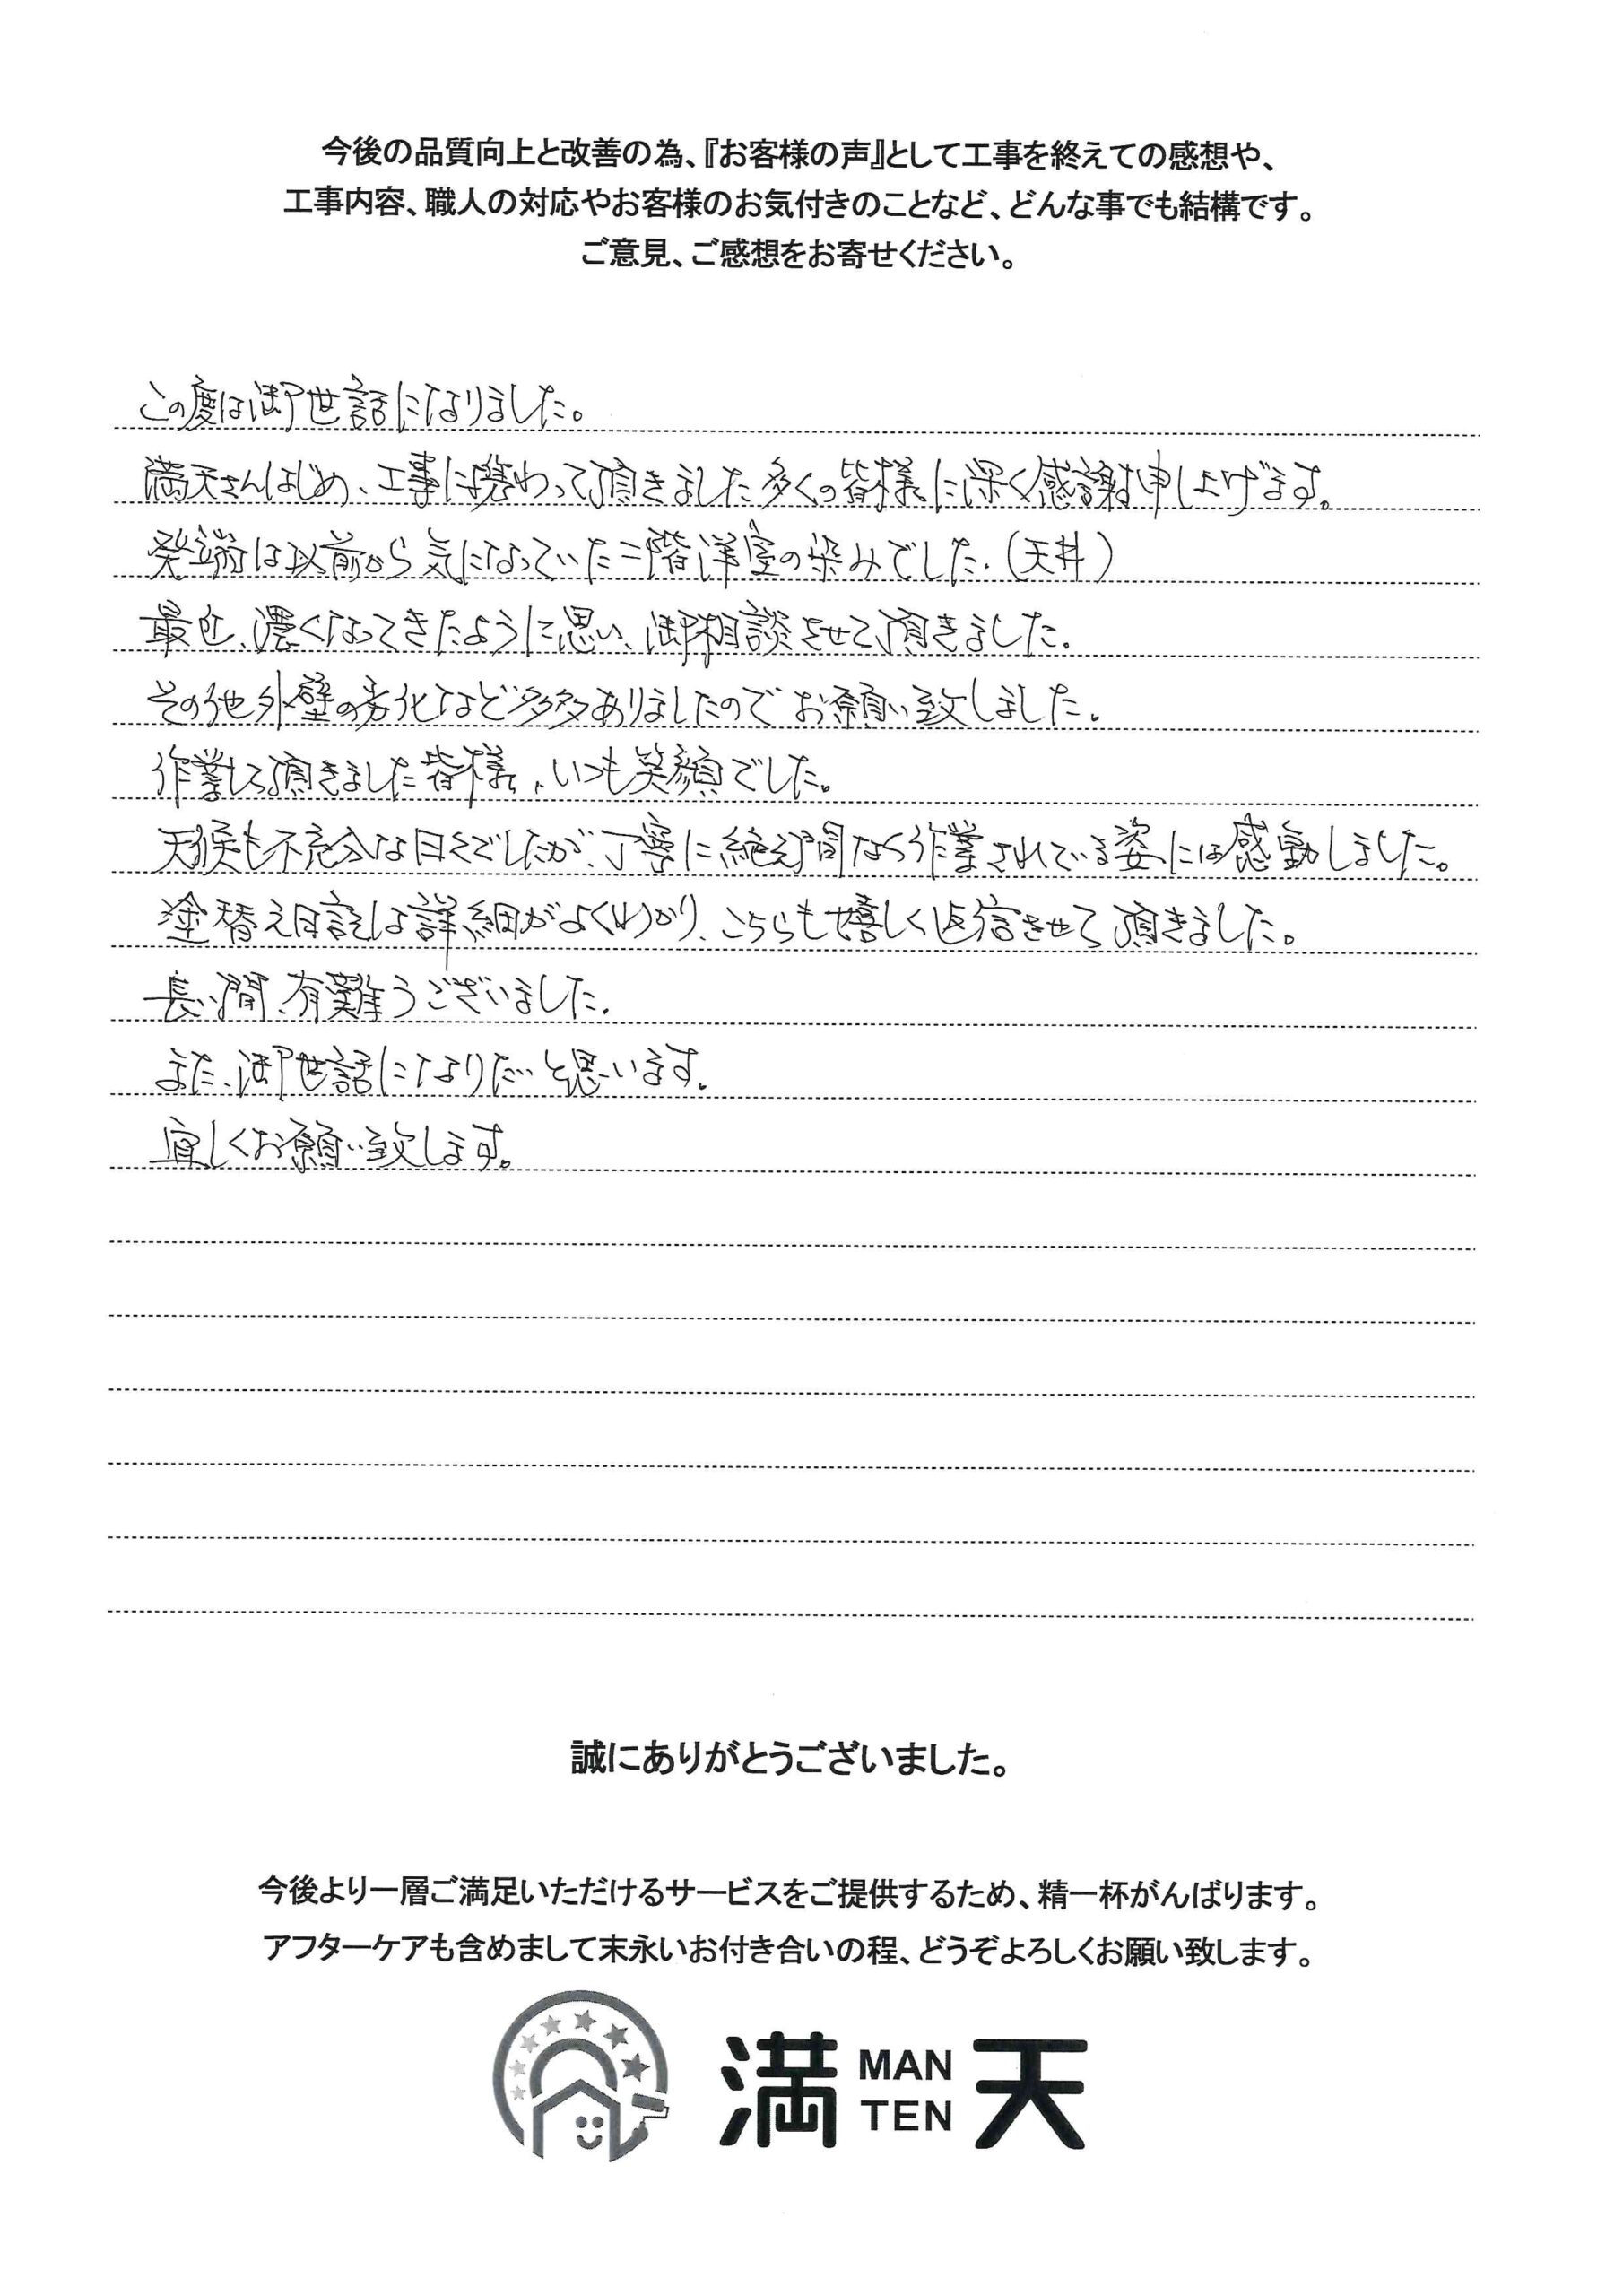 今後の品質向上と改善の為、『お客様の声』として工事を終えての感想や、
工事内容、職人の対応やお客様のお気付きのことなど、どんな事でも結構です。
ご意見、ご感想をお寄せください。
この度は御世話になりました。
満天さんはじめ、工事に携わって頂きました多くの皆様に深く感謝申し上げます。
発端は以前から気になっていた二階洋室の染みでした.(天井)
最近、濃くなってきたように思い、御相談させて頂きました.
その他外壁の劣化など多多ありましたのでお願い致しました.
作業して頂きました皆様、いつも笑顔でした。
天候も不充分な日々でしたが、丁寧に絶え間なく作業されている姿には感動しました。
塗替え日誌は詳細がよくわかり、こちらも嬉しく返信させて頂きました。
長い間、有難うございました.
また、御世話になりたいと思います.
宜しくお願い致します。
誠にありがとうございました。
今後より一層ご満足いただけるサービスをご提供するため、精一杯がんばります。
アフターケアも含めまして末永いお付き合いの程、どうぞよろしくお願い致します。
満 MAN TEN 天